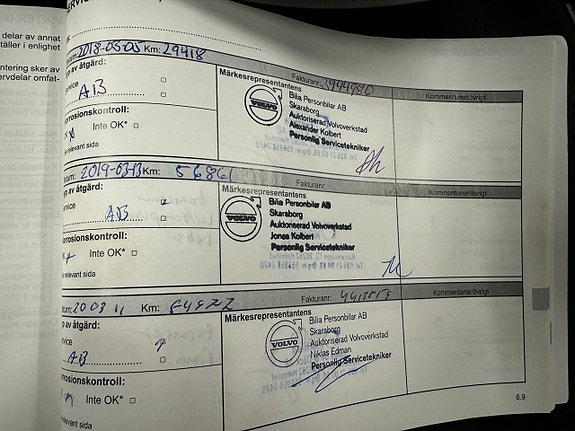 delar av annat
täller i enlighet
ntering sker av
ervdelar omfat-
tum: 2018-05-03 Km: 29418
Fakturanr:
Kommentarer/övrigt
p av åtgärd:
ervice
AB
Märkesrepresentantens
VOLVO
Bilia Personbilar AB
Skaraborg
Auktoriserad Volvoverkstad
Alexander Kolbert
Personlig Servicetekniker
rrosionskontroll:
Inte OK*
e relevant sida
tum: 2019-03-13 Km: 56861
Fakturanr:
Kommentarer/övrigt
p av åtgärd:
ervice
AB
Märkesrepresentantens
VOLVO
Bilia Personbilar AB
Skaraborg
Auktoriserad Volvoverkstad
Jonas Kolbert
Personlig Servicetekniker
rrosionskontroll:
Inte OK*
e relevant sida
tum: 20 03 11 Km:
Fakturanr:
Kommentarer/övrigt
p av åtgärd:
ervice
AB
Märkesrepresentantens
VOLVO
Bilia Personbilar AB
Skaraborg
Auktoriserad Volvoverkstad
Niklas Edman
Personlig Servicetekniker
rrosionskontroll:
Inte OK*
relevant sida
6.9